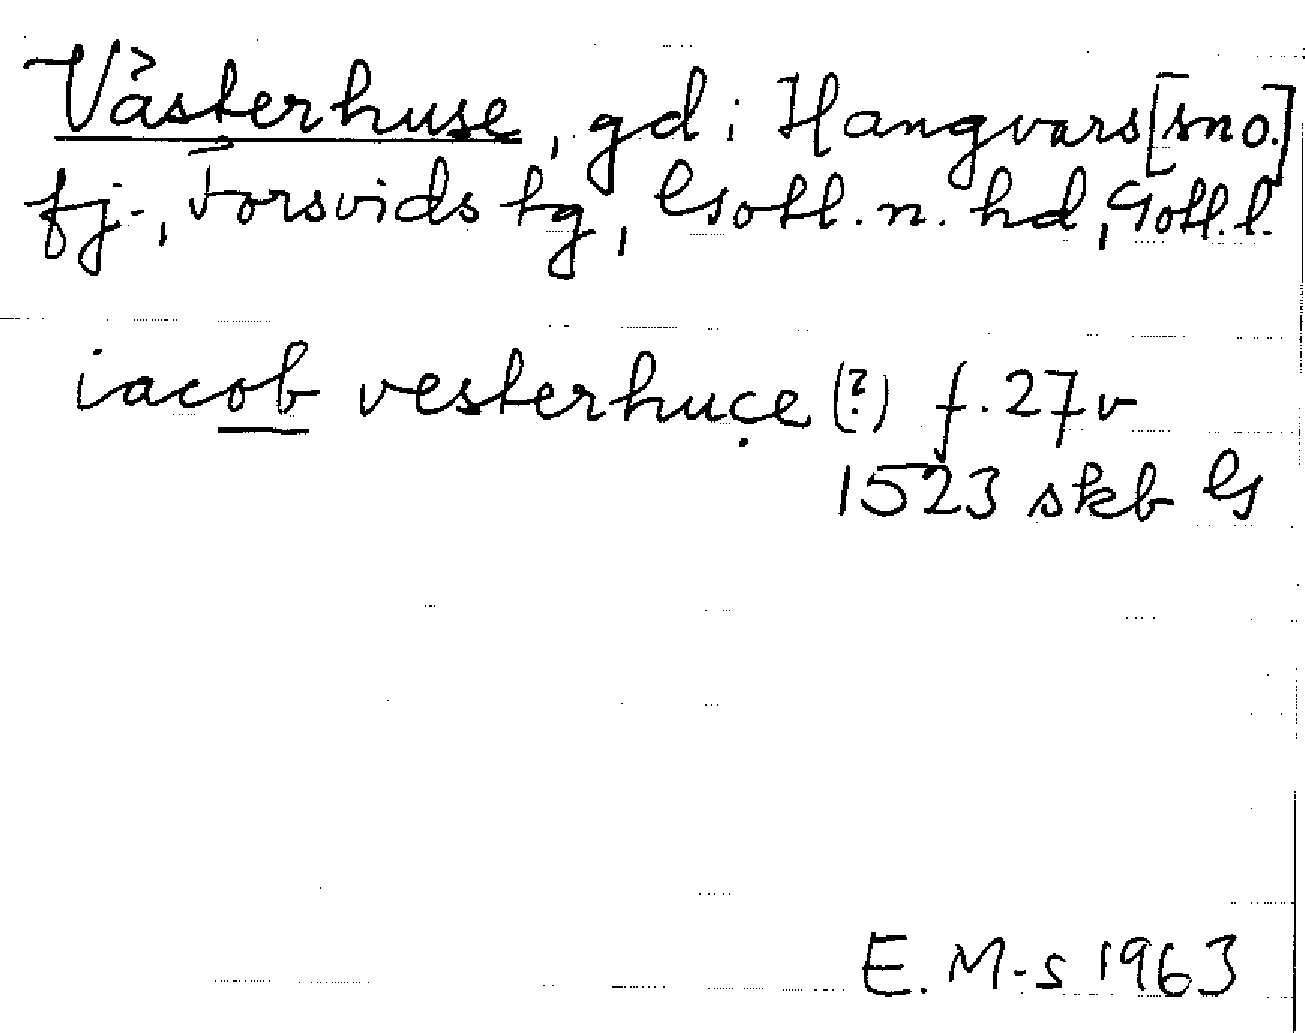 Västerhuse, gd i Hangvars [sno.]
fj., Forsvids tg, Gotl. n. hd, Gotl. l.
iacob vesterhuçe (?) f. 27v
1523 skb G
E. M-s 1963